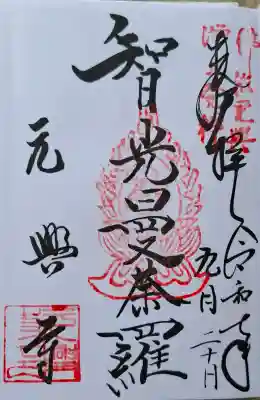 奉拝 令和
九月二十日
智光曼荼羅
元興寺